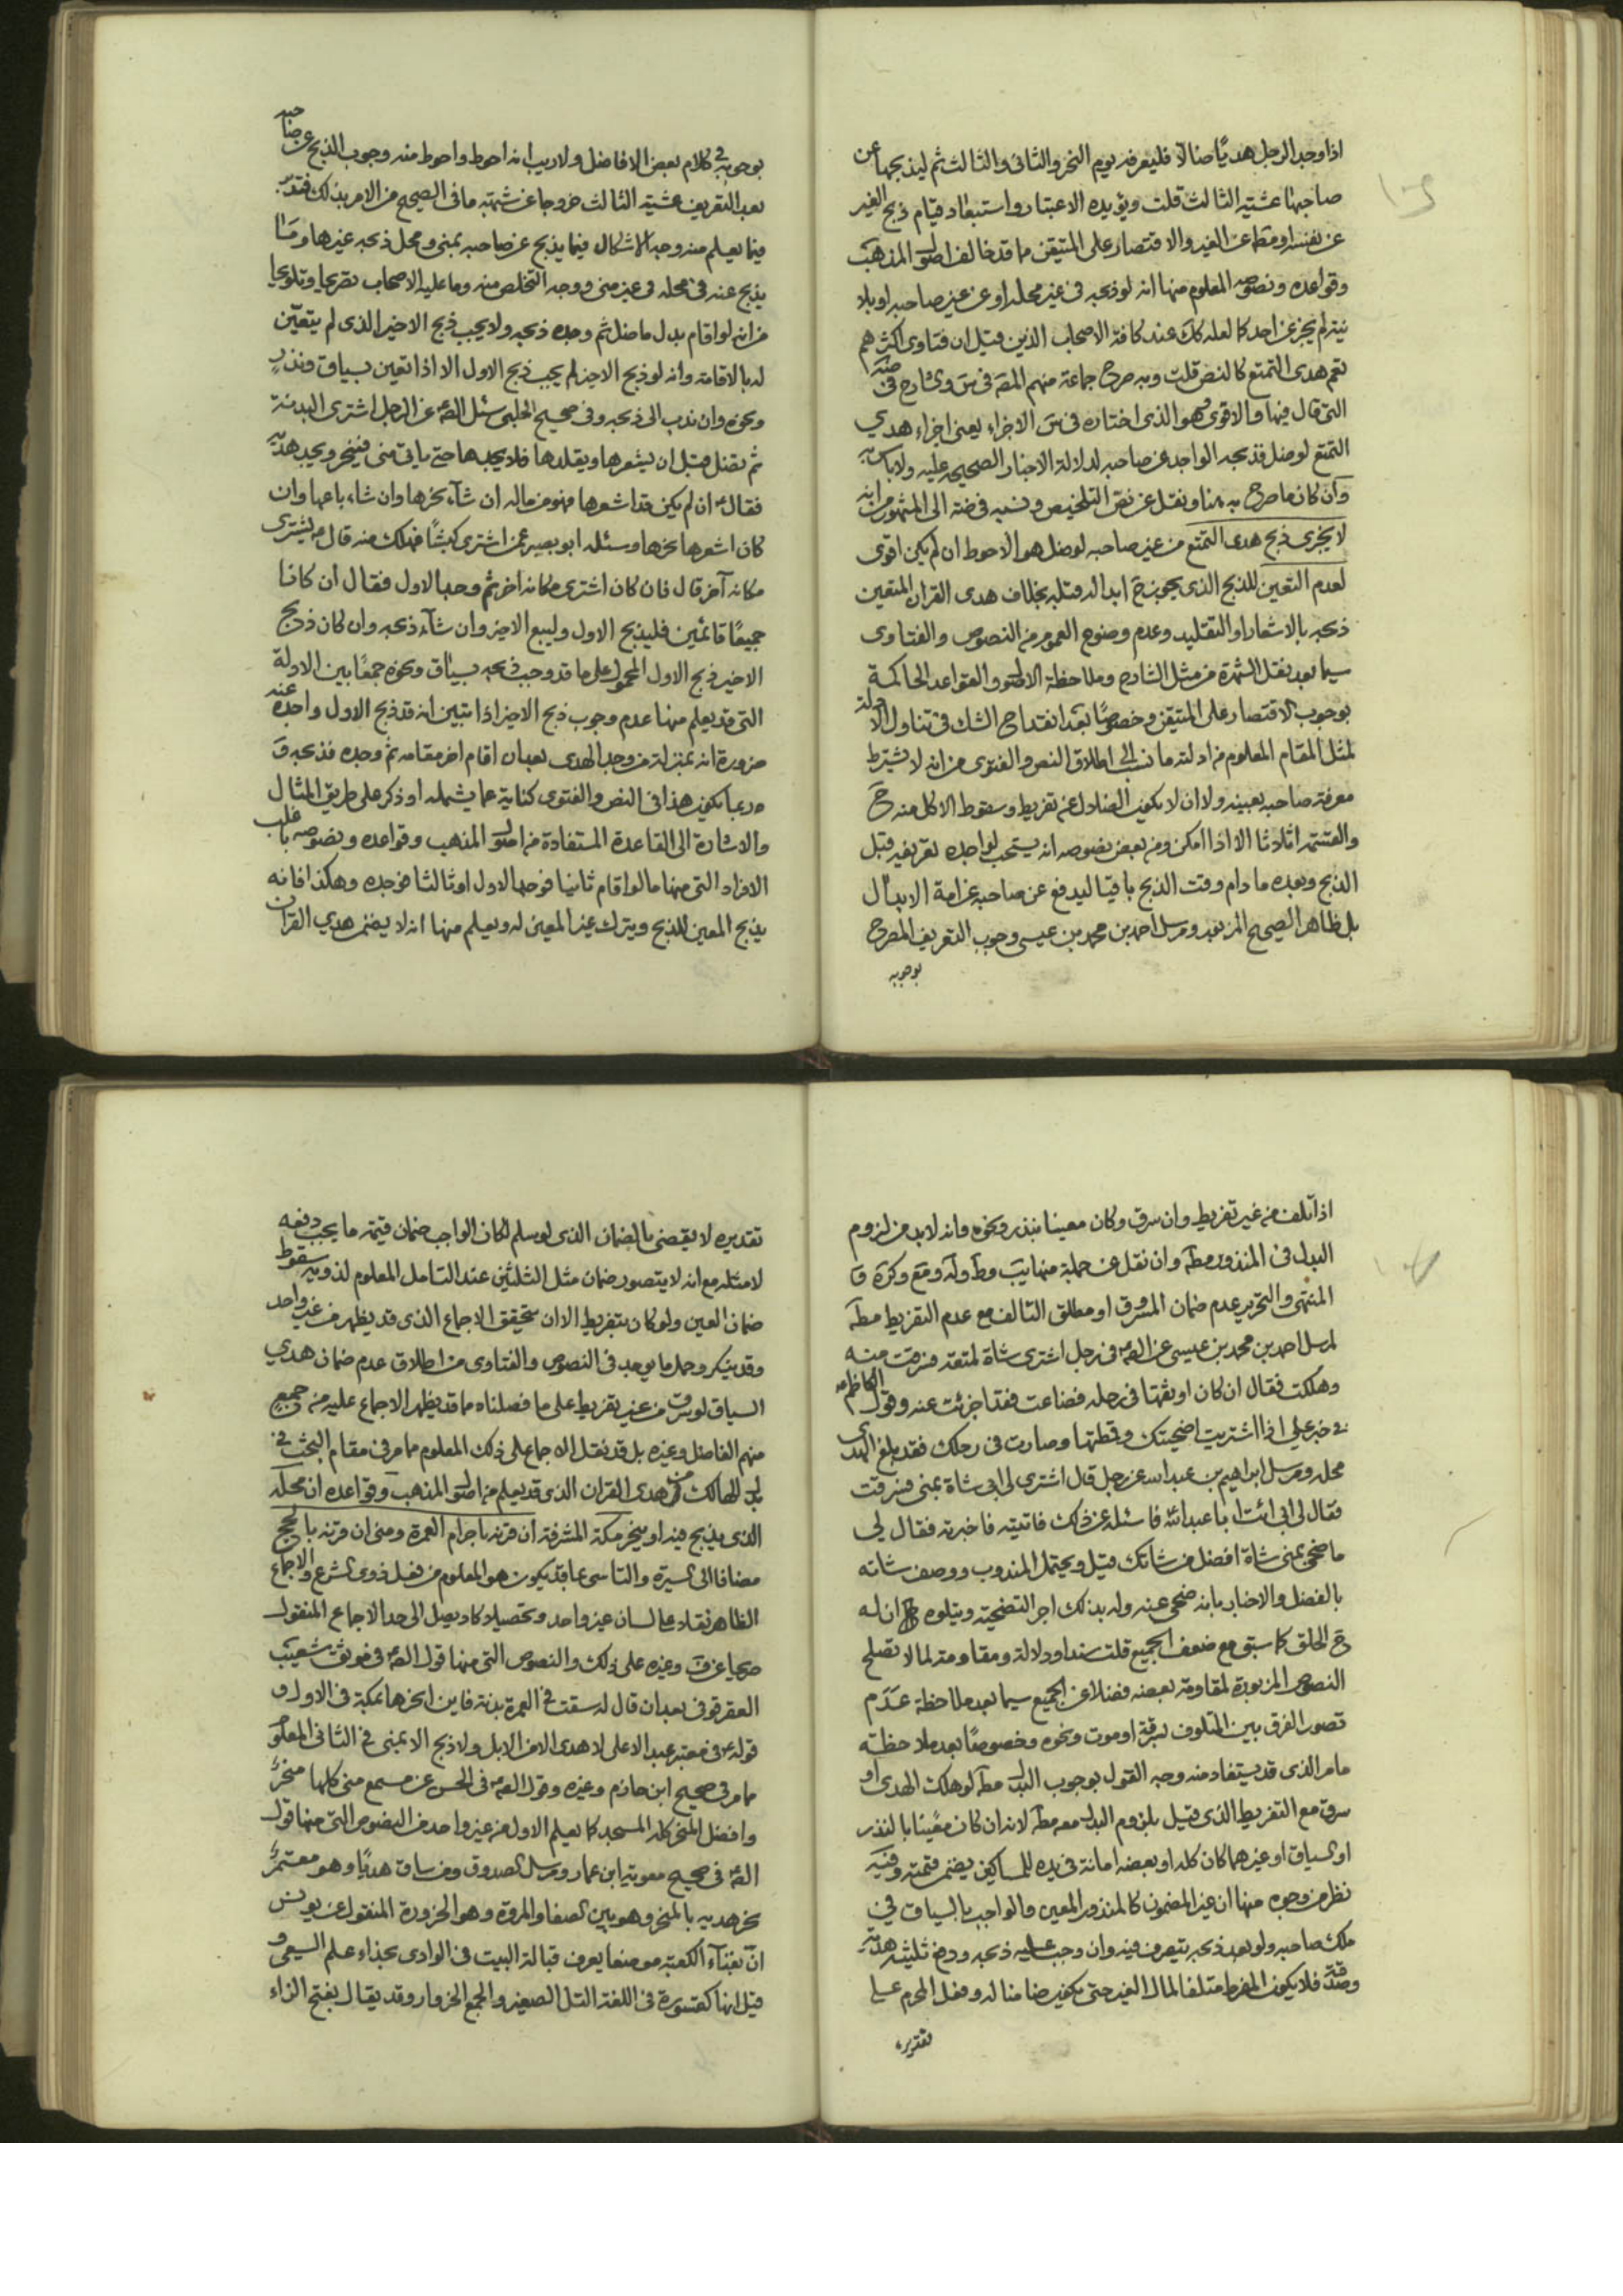 اذا وجد الرجل هديًا ضالًا فليعرفه يوم النحر والثانى والثالث ثم ليذبحها عن
صاحبها عشية الثالث قلت ويؤيده الاعتبار واستبعاد قيام ذبح الغير
عن نفسه او مقامه عن الغير والاقتصار على المتيقن مما قد خالف اصول المذهب
وقواعده ونصوصه المعلوم منها انه لو ذبحه فى غير محله او عن غير صاحبه او بلا
نية لم يجز عن احد كما لعله كك عند كافة الاصحاب الذين قيل ان فتاوى اكثرهم
تعم هدى التمتع كالنص قلت وبه صرح جماعة منهم المصه فى
التى قال فيها والاقوى وهو الذى اختاره فى س الاجزاء يعنى اجزاء هدي
التمتع لو ضل فذبحه الواجد عن صاحبه لدلالة الاخبار الصحيحه عليه ولا باس به
وان كان ما صرح به هنا ونقل عن نص التلخيص ونسبه فى ضه الى المشهور من انه
لا يجزى ذبح هدى التمتع من غير صاحبه لو ضل هو الاحوط ان لم يكن اقوى
لعدم التعين للذبح الذى يجوز ح ابداله قبله بخلاف هدى القران المتعين
ذبحه بالاشعار او التقليد وعدم وضوح العموم من النصوص والفتاوى
سيما بعد نقل الشهرة من مثل الشارح وملاحظة الاصول والقواعد الحاكمة
بوجوب الاقتصار على المتيقن وخصوصًا بعد انقداح الشك فى تناول الادلة
لمثل المقام المعلوم من ادلته ما نسب الى اطلاق النص والفتوى من انه لا يشترط
معرفة صاحبه بعينه ولا ان لا يكون الضلال عن تفريط وسقوط الاكل منه ح
والقسمة اثلاثا الا اذا امكن ومن بعض نصوصه انه يستحب لواجده تعريفه قبل
الذبح وبعده ما دام وقت الذبح باقيا ليدفع عن صاحبه غرامة الابدال
بل ظاهر الصحيح المزبور ومرسل احمد بن محمد بن عيسى وجوب التعريف المصرح
بوجوبه
بوجوبه فى كلام بعض الافاضل ولاريب انه احوط واحوط منه وجوب الذبح عن صاحبه
بعد التعريف عشية الثالث خروجا عن شبهة ما فى الصحيح من الامر بذلك فتدبر
فيما يعلم منه وجه الاشكال فيما يذبح عن صاحبه بمنى ومحل ذبحه غيرها وما
يذبح عنه فى محله فى غير منى ووجه التخلص منه وما عليه الاصحاب تصريحا وتلويحا
من انه لو اقام بدل ما ضل ثم وجده ذبحه ولا يجب ذبح الاخير الذى لم يتعين
له بالاقامة وانه لو ذبح الاخير لم يجب ذبح الاول الا اذا تعين بسياق ونذرٍ
ونحوه وان ندب الى ذبحه وفى صحيح الحلبى سئل الصه عن الرجل اشترى البدنة
ثم تضل قبل ان يشعرها ويقلدها فلا يجدها حتى ياتى منى فينحر ويجد هديه
فقال ع ان لم يكن قد اشعرها فهو من ماله ان شآء نحرها وان شاء باعها وان
كان اشعرها نحرها وسئله ابو بصير عمن اشترى كبشًا فهلك منه قال ع يشترى
مكانه آخر قال فان كان اشترى مكانه اخر ثم وجد الاول فقال ان كانا
جميعًا قائمين فليذبح الاول وليبع الاخير وان شآء ذبحه وان كان ذبح
الاخير ذبح الاول المحمول على ما قد وجب ذبحه بسياق ونحوه جمعًا بين الادلة
التى قد يعلم منها عدم وجوب ذبح الاخير اذا تبين انه قد ذبح الاول واجده عنه
ضرورة انه بمنزلة من وجد الهدى بعد ان اقام اخر مقامه ثم وجده فذبحه و
ربما يكون هذا فى النص والفتوى كناية عما يشمله او ذكر على طريق المثال
والاشارة الى القاعدة المستفادة من اصول المذهب وقواعده ونصوصه باغلب
الافراد التى منها ما لو اقام ثانيا فوجد الاول او ثالثا فوجده وهكذا فانه
يذبح المعين للذبح ويترك غير المعين له ويعلم منها انه لا يضمن هدي القران
اذا تلف من غير تفريط وان سرق وكان معينا بنذر ونحوه وانه لابد من لزوم
البدل فى المنذور مطه وان نقل عن جملة منها يب وط وله ومع وكره وفى
المنتهى والتحرير عدم ضمان المسروق او مطلق التالف مع عدم التفريط مطه
لمرسل احمد بن محمد بن عيسى عن الصه فى رجل اشترى شاة لمتعته فسرقت منه
وهلكت فقال ان كان اوثقها فى رحله فضاعت فقد اجزئت عنه وقول الكاظم ع
فى خبر على اذا اشتريت اضحيتك وقمطتها وصارت فى رحلك فقد بلغ الهدى
محله ومرسل ابراهيم بن عبد الله عن رجل قال اشترى لى ابى شاة بمنى فسرقت
فقال لى ابى ائت ابا عبد الله فاسئله عن ذلك فاتيته فاخبرته فقال لي
ما ضحى بمنى شاة افضل من شاتك قيل ويحتمل المندوب ووصف شاته
بالفضل والاخبار بانه ضحى عنه وله بذلك اجر التضحية ويتلوه ان له
ح الحلق كما سبق مع ضعف الجميع قلت سندا ودلالة ومقاومته لما لا تصلح
النصوص المزبورة لمقاومة بعضه فضلا عن الجميع سيما بعد ملاحظة عدم
تصور الفرق بين التلف بسرقة او موت ونحوه وخصوصًا بعد ملاحظة
ما مر الذى قد يستفاد منه وجه القول بوجوب البدل مطه لو هلك الهدى او
سرق مع التفريط الذى قيل بلزوم البدل معه مطه لانه ان كان معينا بالنذر
او السياق او غيرهما كان كله او بعضه امانة فى يده للمساكين يضمن قيمته وفيه
نظر من وجوه منها ان غير المضمون كالمنذور المعين والواجب بالسياق فى
ملك صاحبه ولو بعد ذبحه يتصرف فيه وان وجب عليه ذبحه ودفع ثلثيه هدية
وصدقة فلا يكون المفرط متلفا لمال الغير حتى يكون ضامنا له وفعل المحرم على
تقديره
تقديره لا يقضى بالضمان الذى لو سلم لكان الواجب ضمان قيمة ما يجب دفعه
لا مثله مع انه لا يتصور ضمان مثل الثلثين عند التامل المعلوم لذويه سقوط
ضمان العين ولو كان بتفريط الا ان يتحقق الاجماع الذى قد يظهر من غير واحد
وقد ينكر وحمل ما يوجد فى النصوص والفتاوى من اطلاق عدم ضمان هدي
السياق لو سرق من غير تفريط على ما فصلناه مما قد يظهر الاجماع عليه من جمع
منهم الفاضل وغيره بل قد نقل الاجماع على ذلك المعلوم مما مر فى مقام البحث فى
بدل الهالك من هدى القران الذى قد يعلم من اصول المذهب وقواعده ان محله
الذى يذبح فيه او ينحر مكة المشرفة ان قرنه باحرام العمرة ومنى ان قرنه بالحج
مضافا الى السيرة والتاسى بما قد يكون هو المعلوم من فعل ذوى الشرع والاجماع
الظاهر نقلا على لسان غير واحد وتحصيلا كاد يصل الى حد الاجماع المنقول
صريحا عن ف وغيره على ذلك والنصوص التى منها قول الصه فى موثق شعيب
العقرقوفى بعد ان قال له سقت فى العمرة بدنة فاين انحرها بمكة فى الاول و
قوله ع فى معتبر عبد الاعلى لا هدى الا من الابل ولا ذبح الا بمنى فى الثانى المعلوم
مما مر فى صحيح ابن حازم وغيره وقول الصه فى الحسن عن مسمع منى كلها منحرٌ
وافضل المنحر كله المسجد كما يعلم الاول من غير واحد من النصوص التى منها قول
الصه فى صحيح معوية ابن عمار ومرسل الصدوق ومن ساق هديًا وهو معتمرٌ
نحر هديه بالمنحر وهو بين الصفا والمروة وهو الحزورة المنقول عن يونس
ان بفنآء الكعبة موضعا يعرف قبالة البيت فى الوادى بحذاء علم السعى و
قيل انها كقسورة فى اللغة التل الصغير والجمع الحزاور وقد يقال بفتح الزاء